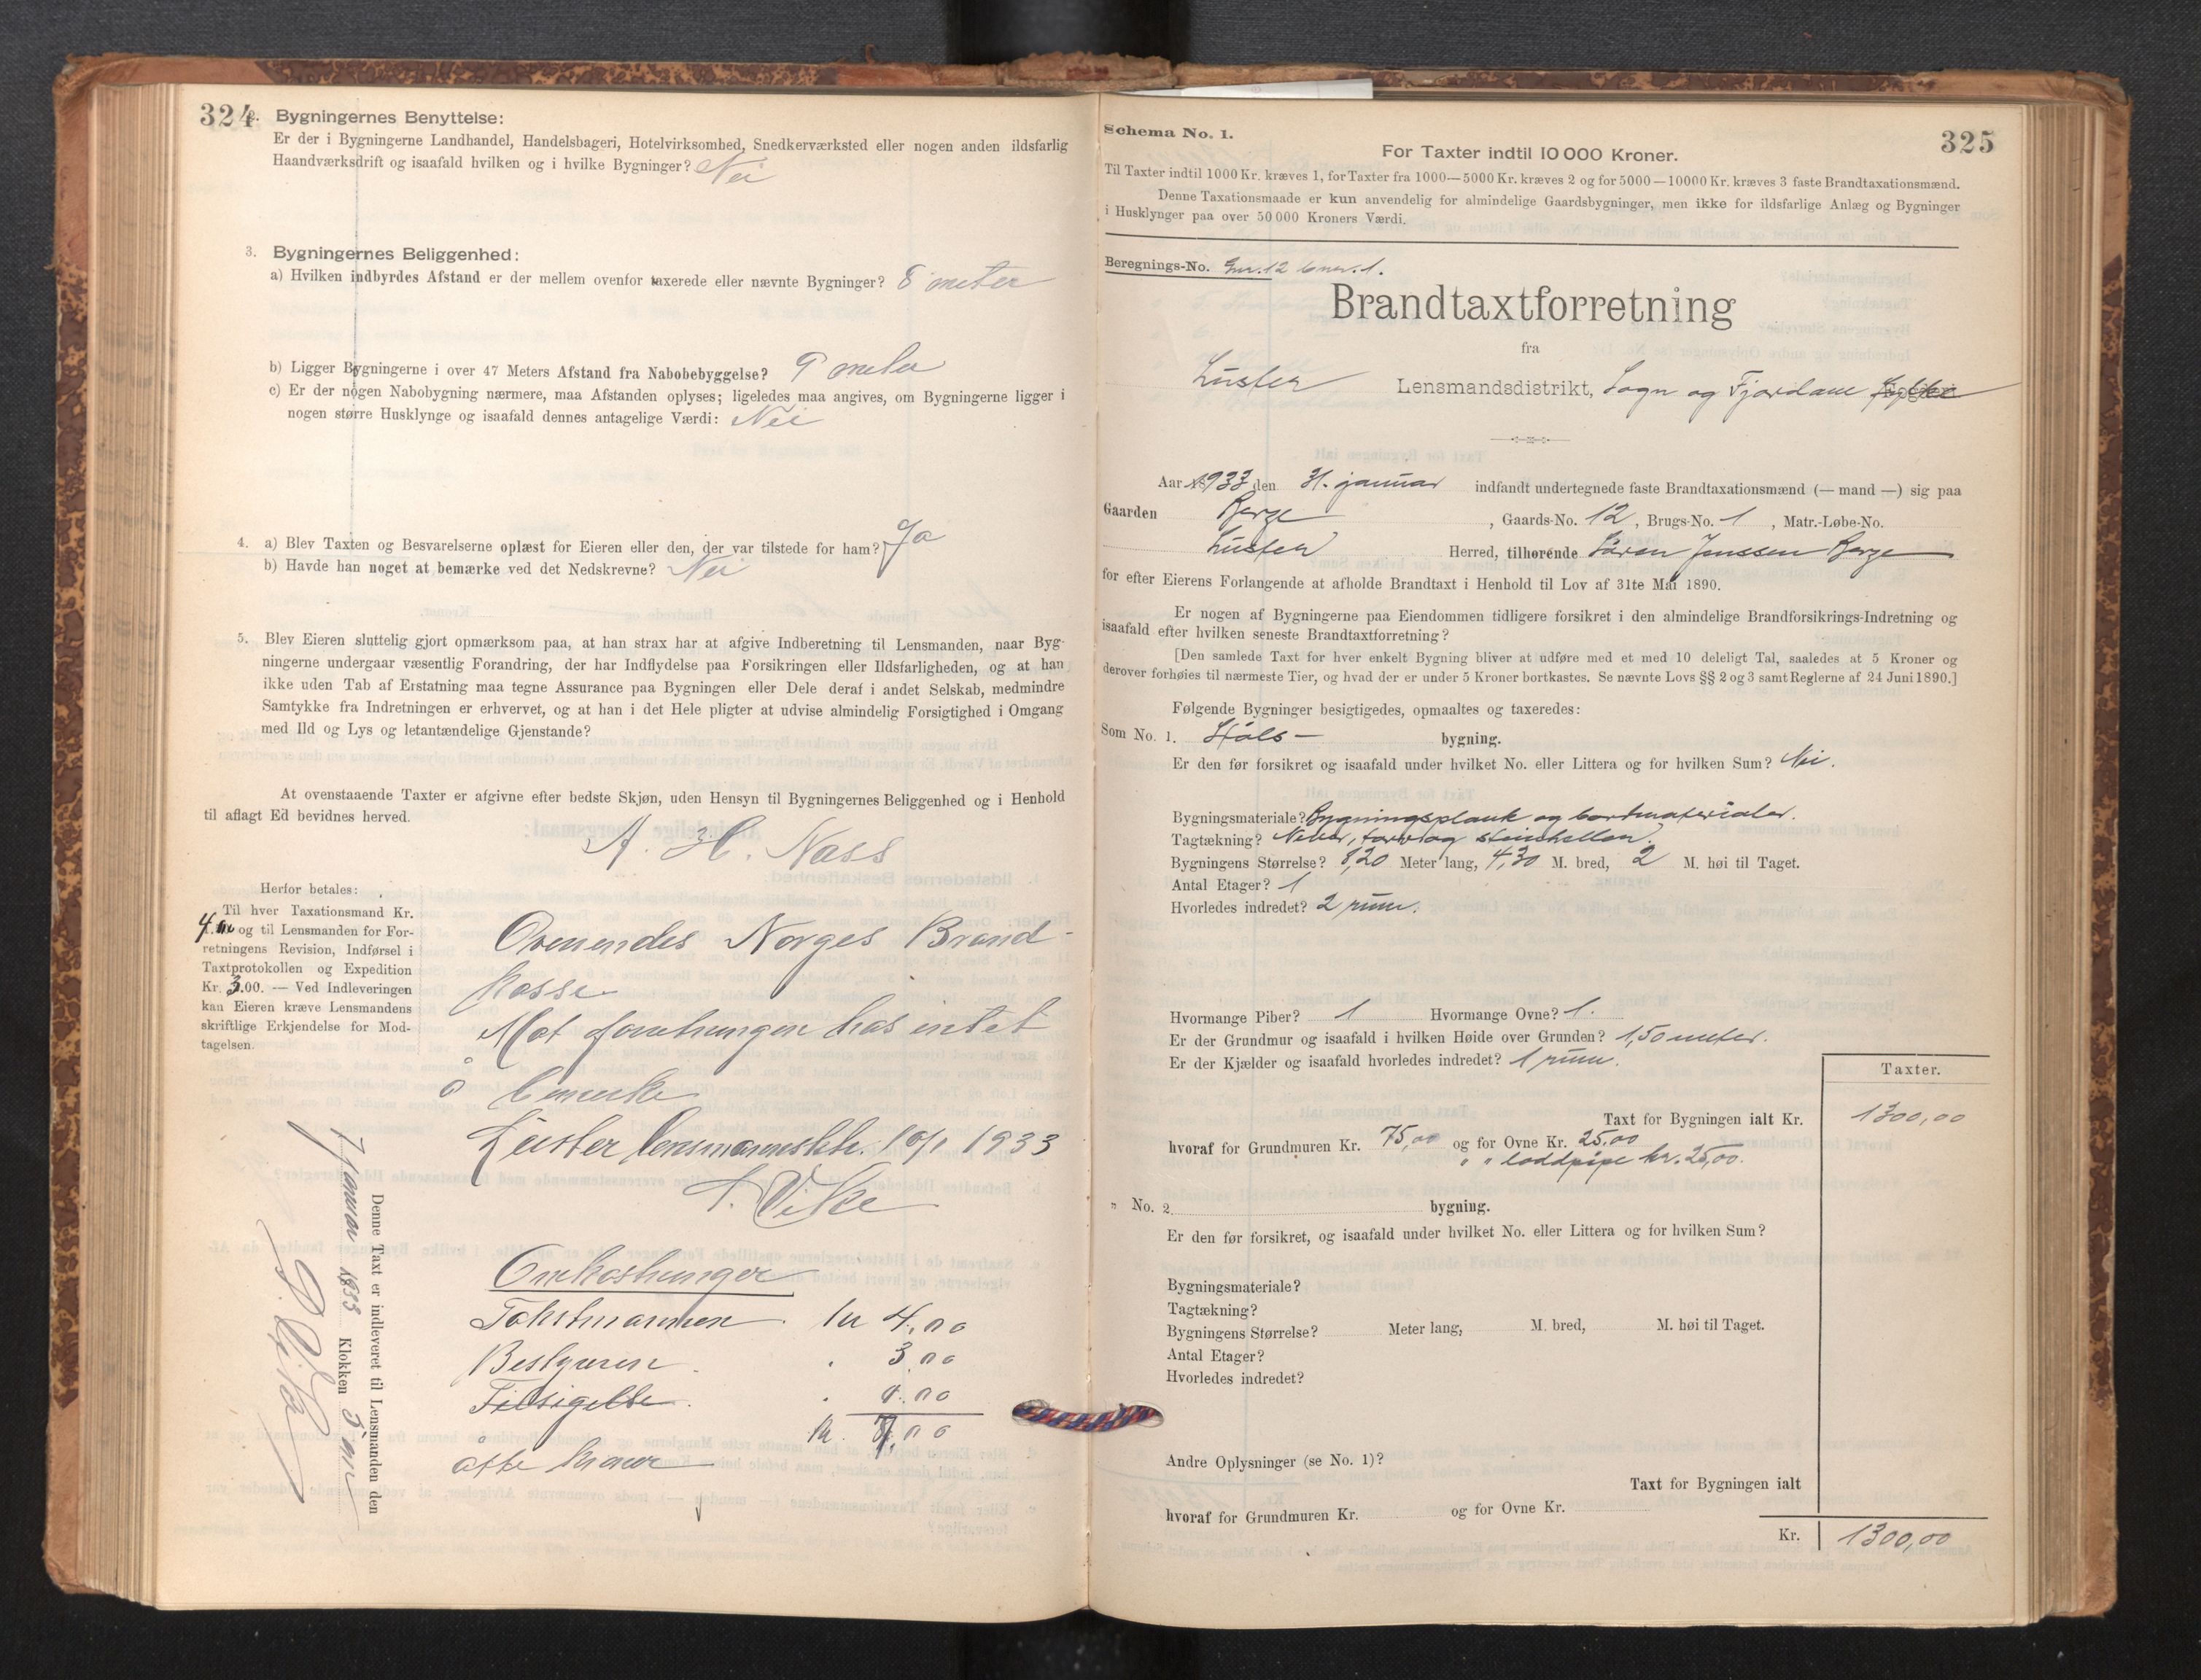 324
2. Bygningernes Benyttelse:
Er der i Bygningerne Landhandel, Handelsbageri, Hotelvirksomhed, Snedkerværksted eller nogen anden ildsfarlig
Haandværksdrift og isaafald hvilken og i hvilke Bygninger? Nei
3. Bygningernes Beliggenhed:
a) Hvilken indbyrdes Afstand er der mellem ovenfor taxerede eller nævnte Bygninger? 8 meter
b) Ligger Bygningerne i over 47 Meters Afstand fra Nabobebyggelse? 9 meter
c) Er der nogen Nabobygning nærmere, maa Afstanden oplyses; ligeledes maa angives, om Bygningerne ligger i
nogen større Husklynge og isaafald dennes antagelige Værdi: Nei
4. a) Blev Taxten og Besvarelserne oplæst for Eieren eller den, der var tilstede for ham? Ja
b) Havde han noget at bemærke ved det Nedskrevne? Nei
5. Blev Eieren sluttelig gjort opmærksom paa, at han strax har at afgive Indberetning til Lensmanden, naar Byg-
ningerne undergaar væsentlig Forandring, der har Indflydelse paa Forsikringen eller Ildsfarligheden, og at han
ikke uden Tab af Erstatning maa tegne Assurance paa Bygningen eller Dele deraf i andet Selskab, medmindre
Samtykke fra Indretningen er erhvervet, og at han i det Hele pligter at udvise almindelig Forsigtighed i Omgang
med Ild og Lys og letantændelige Gjenstande?
At ovenstaaende Taxter er afgivne efter bedste Skjøn, uden Hensyn til Bygningernes Beliggenhed og i Henhold
til aflagt Ed bevidnes herved.
A. H. Næss
Herfor betales:
Til hver Taxationsmand Kr.
4.00 og til Lensmanden for For-
retningens Revision, Indførsel i
Taxtprotokollen og Expedition
Kr. 3.00. — Ved Indleveringen
kan Eieren kræve Lensmandens
skriftlige Erkjendelse for Mod-
tagelsen.
Norges Brand-
kasse
Mot forretningen has intet
å bemerke
Luster lensmannsktr. 10/1 1933
Vike
Omkostninger
Takstmannen kr 4,00
Bestyreren 3,00
00
kr. 00
åtte kroner
Denne Taxt er indleveret til Lensmanden den
7 januar 1933 Klokken 5
Vike
325
Schema No. 1.
For Taxter indtil 10 000 Kroner.
Til Taxter indtil 1000 Kr. kræves 1, for Taxter fra 1000—5000 Kr. kræves 2 og for 5000—10000 Kr. kræves 3 faste Brandtaxationsmænd.
Denne Taxationsmaade er kun anvendelig for almindelige Gaardsbygninger, men ikke for ildsfarlige Anlæg og Bygninger
i Husklynger paa over 50 000 Kroners Værdi.
Beregnings-No. Gnr. 12 bnr. 1.
Brandtaxtforretning
fra
Luster Lensmandsdistrikt, Sogn og Fjordane
Aar 1933 den januar indfandt undertegnede faste Brandtaxationsmænd (— mand —) sig paa
Gaarden Berge, Gaards-No. 12, Brugs-No. 1, Matr.-Løbe-No.
Luster Herred, tilhørende Søren Jenssen Berge
for efter Eierens Forlangende at afholde Brandtaxt i Henhold til Lov af 31te Mai 1890.
Er nogen af Bygningerne paa Eiendommen tidligere forsikret i den almindelige Brandforsikrings-Indretning og
isaafald efter hvilken seneste Brandtaxtforretning?
[Den samlede Taxt for hver enkelt Bygning bliver at udføre med et med 10 deleligt Tal, saaledes at 5 Kroner og
derover forhøies til nærmeste Tier, og hvad der er under 5 Kroner bortkastes. Se nævnte Lovs §§ 2 og 3 samt Reglerne af 24 Juni 1890.]
Følgende Bygninger besigtigedes, opmaaltes og taxeredes:
Som No. 1. Støls- bygning.
Er den før forsikret og isaafald under hvilket No. eller Littera og for hvilken Sum? Nei.
Bygningsmateriale? Bygningsplank og bordmaterialer.
Tagtækning? Never, torv og steinhellen.
Bygningens Størrelse? 8,20 Meter lang, 4,30 M. bred, 2 M. høi til Taget.
Antal Etager? 1
Hvorledes indredet? 2 rum.
Hvormange Piber? 1 Hvormange Ovne? 1.
Er der Grundmur og isaafald i hvilken Høide over Grunden? 1,50 meter.
Er der Kjælder og isaafald hvorledes indredet? 1 rum.
Taxter.
Taxt for Bygningen ialt Kr. 1300,00
hvoraf for Grundmuren Kr. 75,00 og for Ovne Kr. 25,00
" " loddpipe kr. 25,00.
" No. 2 bygning.
Er den før forsikret, og isaafald under hvilket No. eller Littera og for hvilken Sum?
Bygningsmateriale?
Tagtækning?
Bygningens Størrelse? Meter lang, M. bred, M. høi til Taget.
Antal Etager?
Hvorledes indredet?
Andre Oplysninger (se No. 1)?
Taxt for Bygningen ialt
hvoraf for Grundmuren Kr. og for Ovne Kr.
Kr. 1300,00